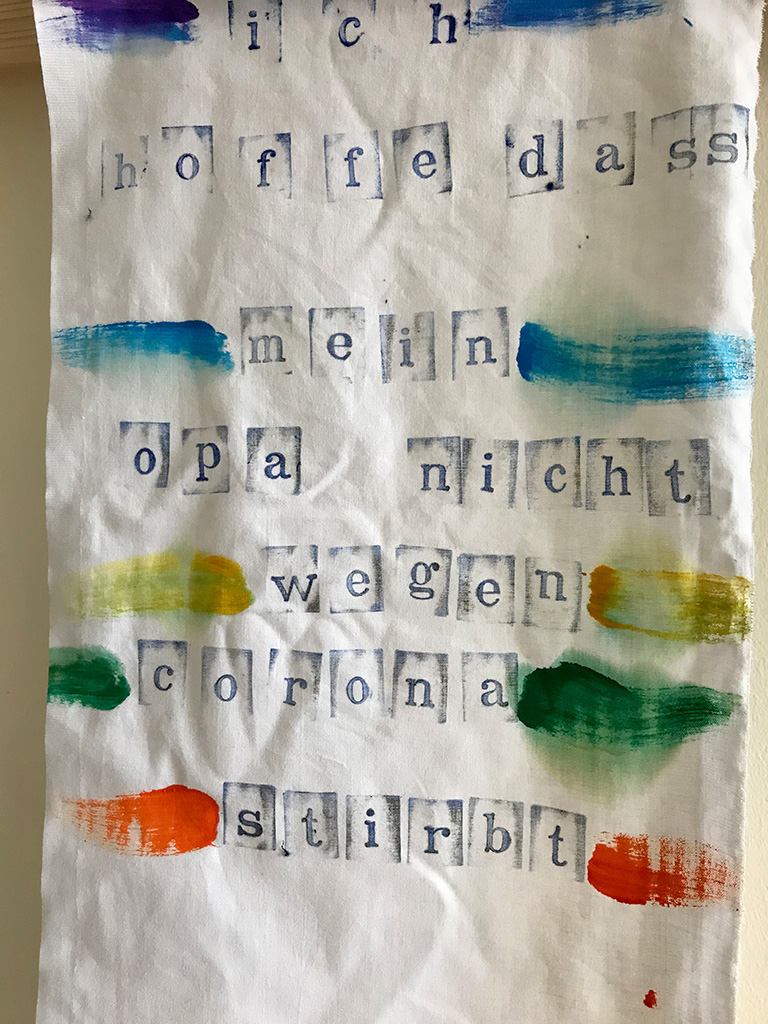 ich
hoffe dass
mein
opa nicht
wegen
corona
stirbt